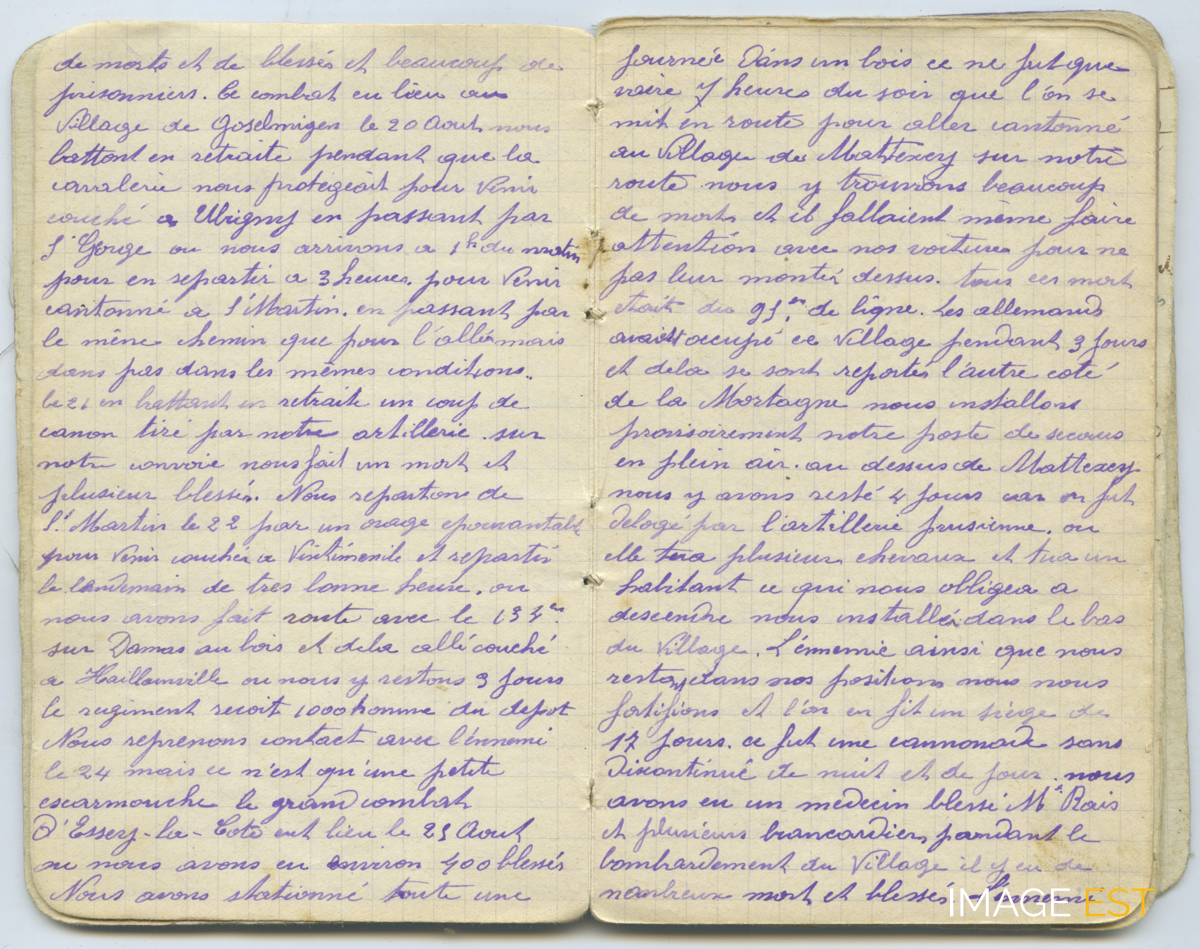 de morts et de blessés et beaucoup de
prisonniers. Ce combat eu lieu au
Village de Goselmigen le 20 Aout nous
battont en retraite pendant que la
cavalerie nous protégeait pour venir
couché a Ubigny en passant par
St Gorge ou nous arrivons a 1h du matin
pour en repartir a 3 heures. pour venir
cantonné a St Martin. en passant par
le même chemin que pour l'allé mais
dans pas dans les mêmes conditions..
le 21 en battant en retraite un coup de
canon tiré par notre artillerie sur
notre convoie nous fait un mort et
plusieur blessés. Nous repartons de
St Martin le 22 par un orage epouvantable
pour venir couché a Vintimenile et repartir
le landemain de tres bonne heure. ou
nous avons fait route avec le 134em
sur Damas au bois et dela allé couché
a Haillainville ou nous y restons 3 jours
le regiment recoit 1000 homme du depot
Nous reprenons contact avec l'énnemi
le 24 mais ce n'est qu'une petite
escarmouche le grand combat
D'Essey-la-Cote eut lieu le 25 Aout
ou nous avons eu environ 400 blessés
Nous avons stationné toute une
journée Dans un bois ce ne fut que
vaire 7 heures du soir que l'on se
mit en route pour aller cantonné
au Village de Mattexey sur notre
route nous y trouvons beaucoup
de morts et il fallaient même faire
attention avec nos voitures pour ne
pas leur monter dessus. tous ces mort
etait du 95em de ligne. Les allemands
avait ocupé ce Village pendant 3 jours
et dela se sont reportés l'autre coté
de la Mortagne nous installons
provisoirement notre poste de secours
en plein air. au dessus de Mattexey
nous y avons resté 4 jours car on fut
delogé par l'artillerie prusienne. ou
elle tua plusieur chevaux et tua un
habitant ce qui nous obligea a
descendre nous installé dans le bas
du Village. L'énnemie ainsi que nous
restant dans nos positions nous nous
fortifions et l'on en fit un siége de
17 jours. ce fut une cannonade sans
Discontinué de nuit et de jour. nous
avons eu un medecin blessé Mr Rais
et plusieurs brancardiers pandant le
bombardement du Village il y eu de
nombreux mort et blessés
IMAGE EST